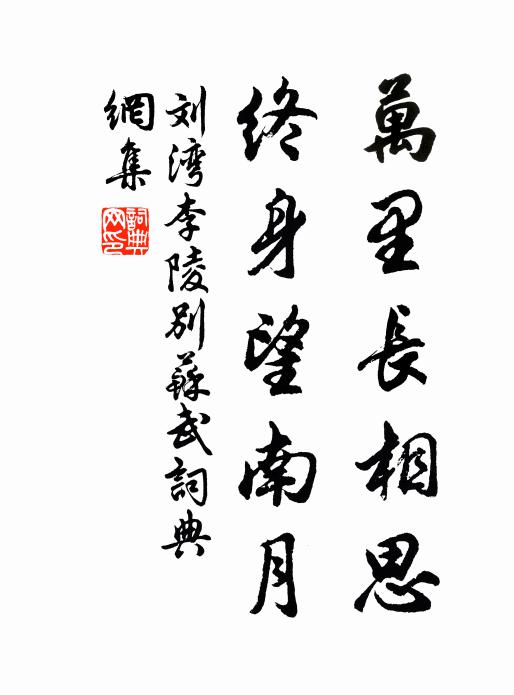 萬里長相思
終身望南月
刘湾李陵别蘇武詞典
網集
詞典
网印